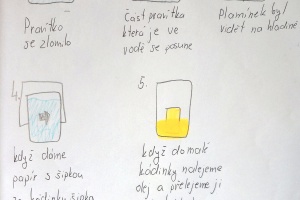 Pravítko
se zlomilo
Část pravítka
která je ve
vodě se posune
Plamínek byl
vidět na hladině
4.
když dáme
papír s šipkou
za kádinku šipka
5.
když do malé
kádinky nalejeme
olej a přelejeme ji
v